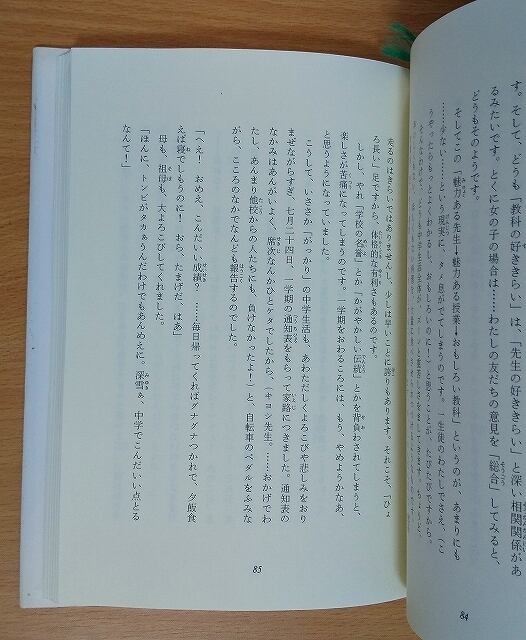 す。そして、どうも「教科の好ききらい」は、「先生の好ききらい」と深い相関関係があ
るみたいです。とくに女の子の場合は……わたしの友だちの意見を「総合」してみると、
どうもそのようです。
そしてこの「魅力ある先生→魅力ある授業→おもしろい教科」というのが、あまりにも
……少ない……という現実に、タメ息がでてしまうのです。一生徒のわたしでさえ、(こ
うやったらもっとよくわかるし、おもしろいのに!)と思うことが、たびたびですから。
84
走るのはきらいではありませんし、少しは早いことに誇りもあります。それこそ、「ひょ
ろ長い」足ですから、体格的な有利さもあるのです。
しかし、やれ「学校の名誉」とか「かがやかしい伝統」とかを背負わされてしまうと、
楽しさが苦痛になってしまうのです。一学期をおわるころには、もう、やめようかなあ、
と思うようになっていました。
こうして、いささか「がっかり」の中学生活も、あわただしくよろこびや悲しみをおり
まぜながらすぎ、七月二十四日、一学期の通知表をもらって家路につきました。通知表の
なかみはあんがいよく、席次なんかひとケタでしたから、(キヨシ先生。……おかげでわ
たし、あんまり他校からの人たちにも、負けなかったよー!)と、自転車のペダルをふみな
がら、こころのなかでなんども報告するのでした。
「へえ!　おめえ、こんだいい成績?　……毎日帰ってくればグナグナつかれて、夕飯食
えば寝でしもうのに!　おら、たまげだ、はあ」
母も、祖母も、大よろこびしてくれました。
「ほんに、トンビがタカぁうんだわけでもあんめえに。深雪ぁ、中学でこんだいい点とる
なんて!」
85